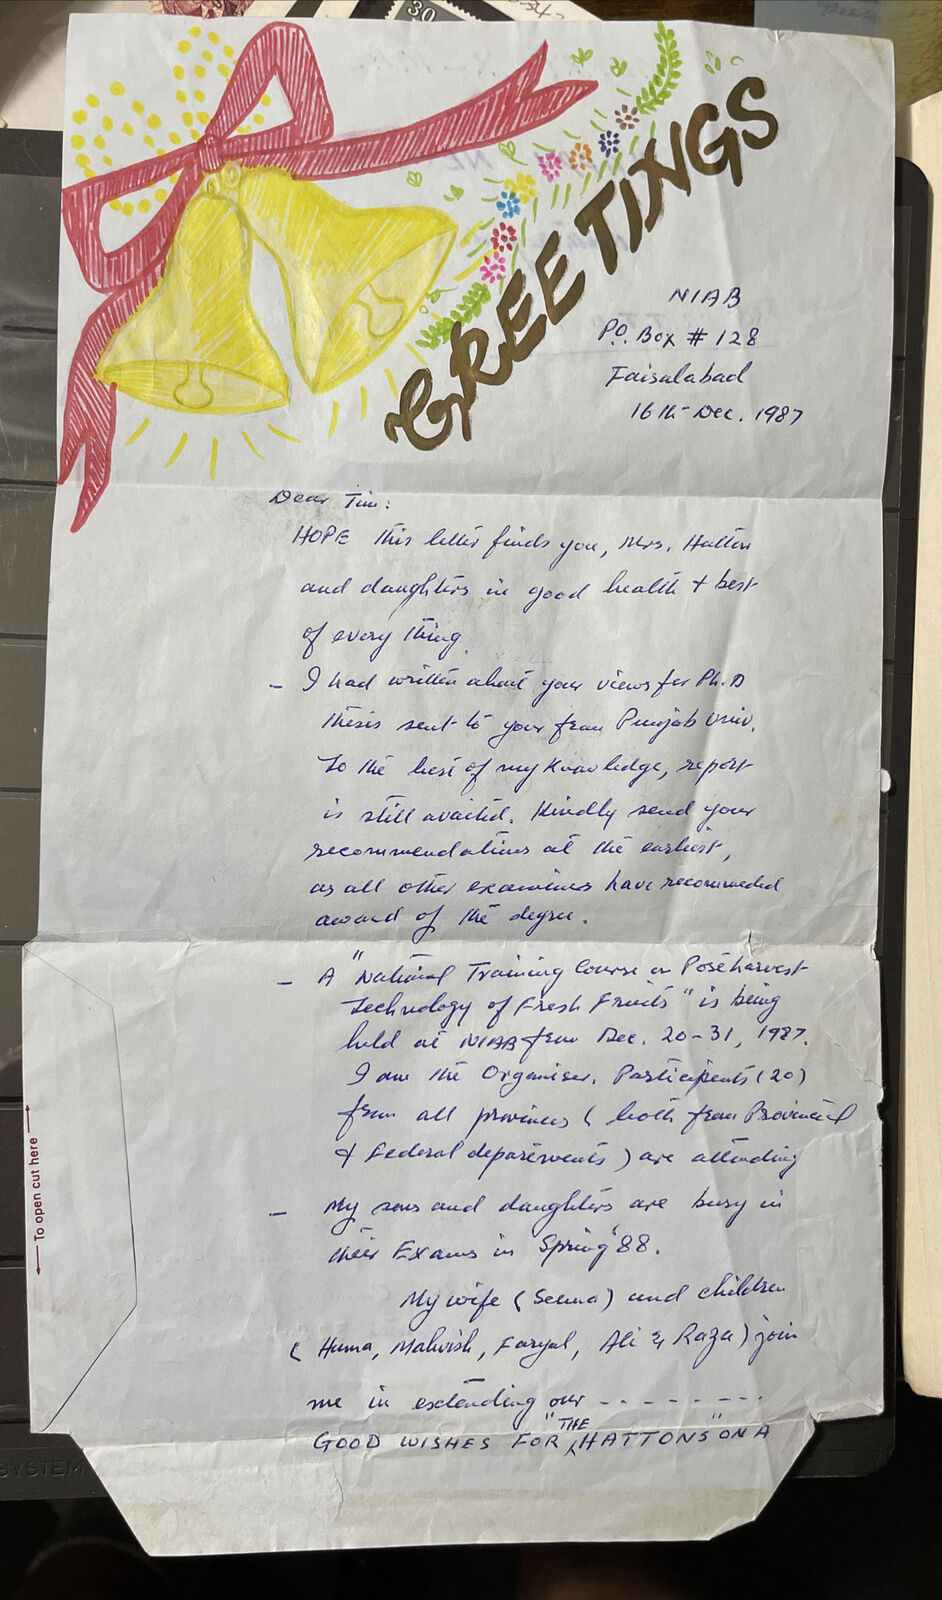 30
GREETINGS
NIAB
P.O. Box # 128
Faisalabad
16th Dec. 1987
Dear Tim:
HOPE this letter finds you, Mrs. Hatton
and daughters in good health & best
of every thing.
- I had written about your views for Ph.D
thesis sent to your from Punjab Univ.
To the best of my Knowledge, report
is still awaited. Kindly send your
recommendations at the earliest,
as all other examiners have recommended
award of the degree.
- A "National Training Course on Postharvest
Technology of Fresh Fruits" is being
held at NIAB from Dec. 20-31, 1987.
I am the Organiser. Participents (20)
from all provinces ( both from Provincial
& Federal departments ) are attending
- My sons and daughters are busy in
their Exams in Spring '88.
My wife ( Seema ) and children
( Huma, Mahvish, Faryal, Ali & Raza ) join
me in extending our - - - - - - - -
GOOD WISHES FOR "THE HATTONS" ON A
To open cut here
SYSTEM